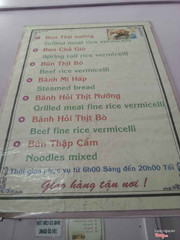 Bún Thịt nướng
Grilled meat rice vermicelli
Bún Chả Giò
Spring roll rice vermicelli
Bún Thịt Bò
Beef rice vermicelli
Bánh Mì Hấp
Steamed bread
Bánh Hỏi Thịt Nướng
Grilled meat fine rice vermicelli
Bánh Hỏi Thịt Bò
Beef fine rice vermicelli
Bún Thập Cẩm
Noodles mixed
Thời gian phục vụ từ 6h00 Sáng đến 20h00 Tối
Giao hàng tận nơi !